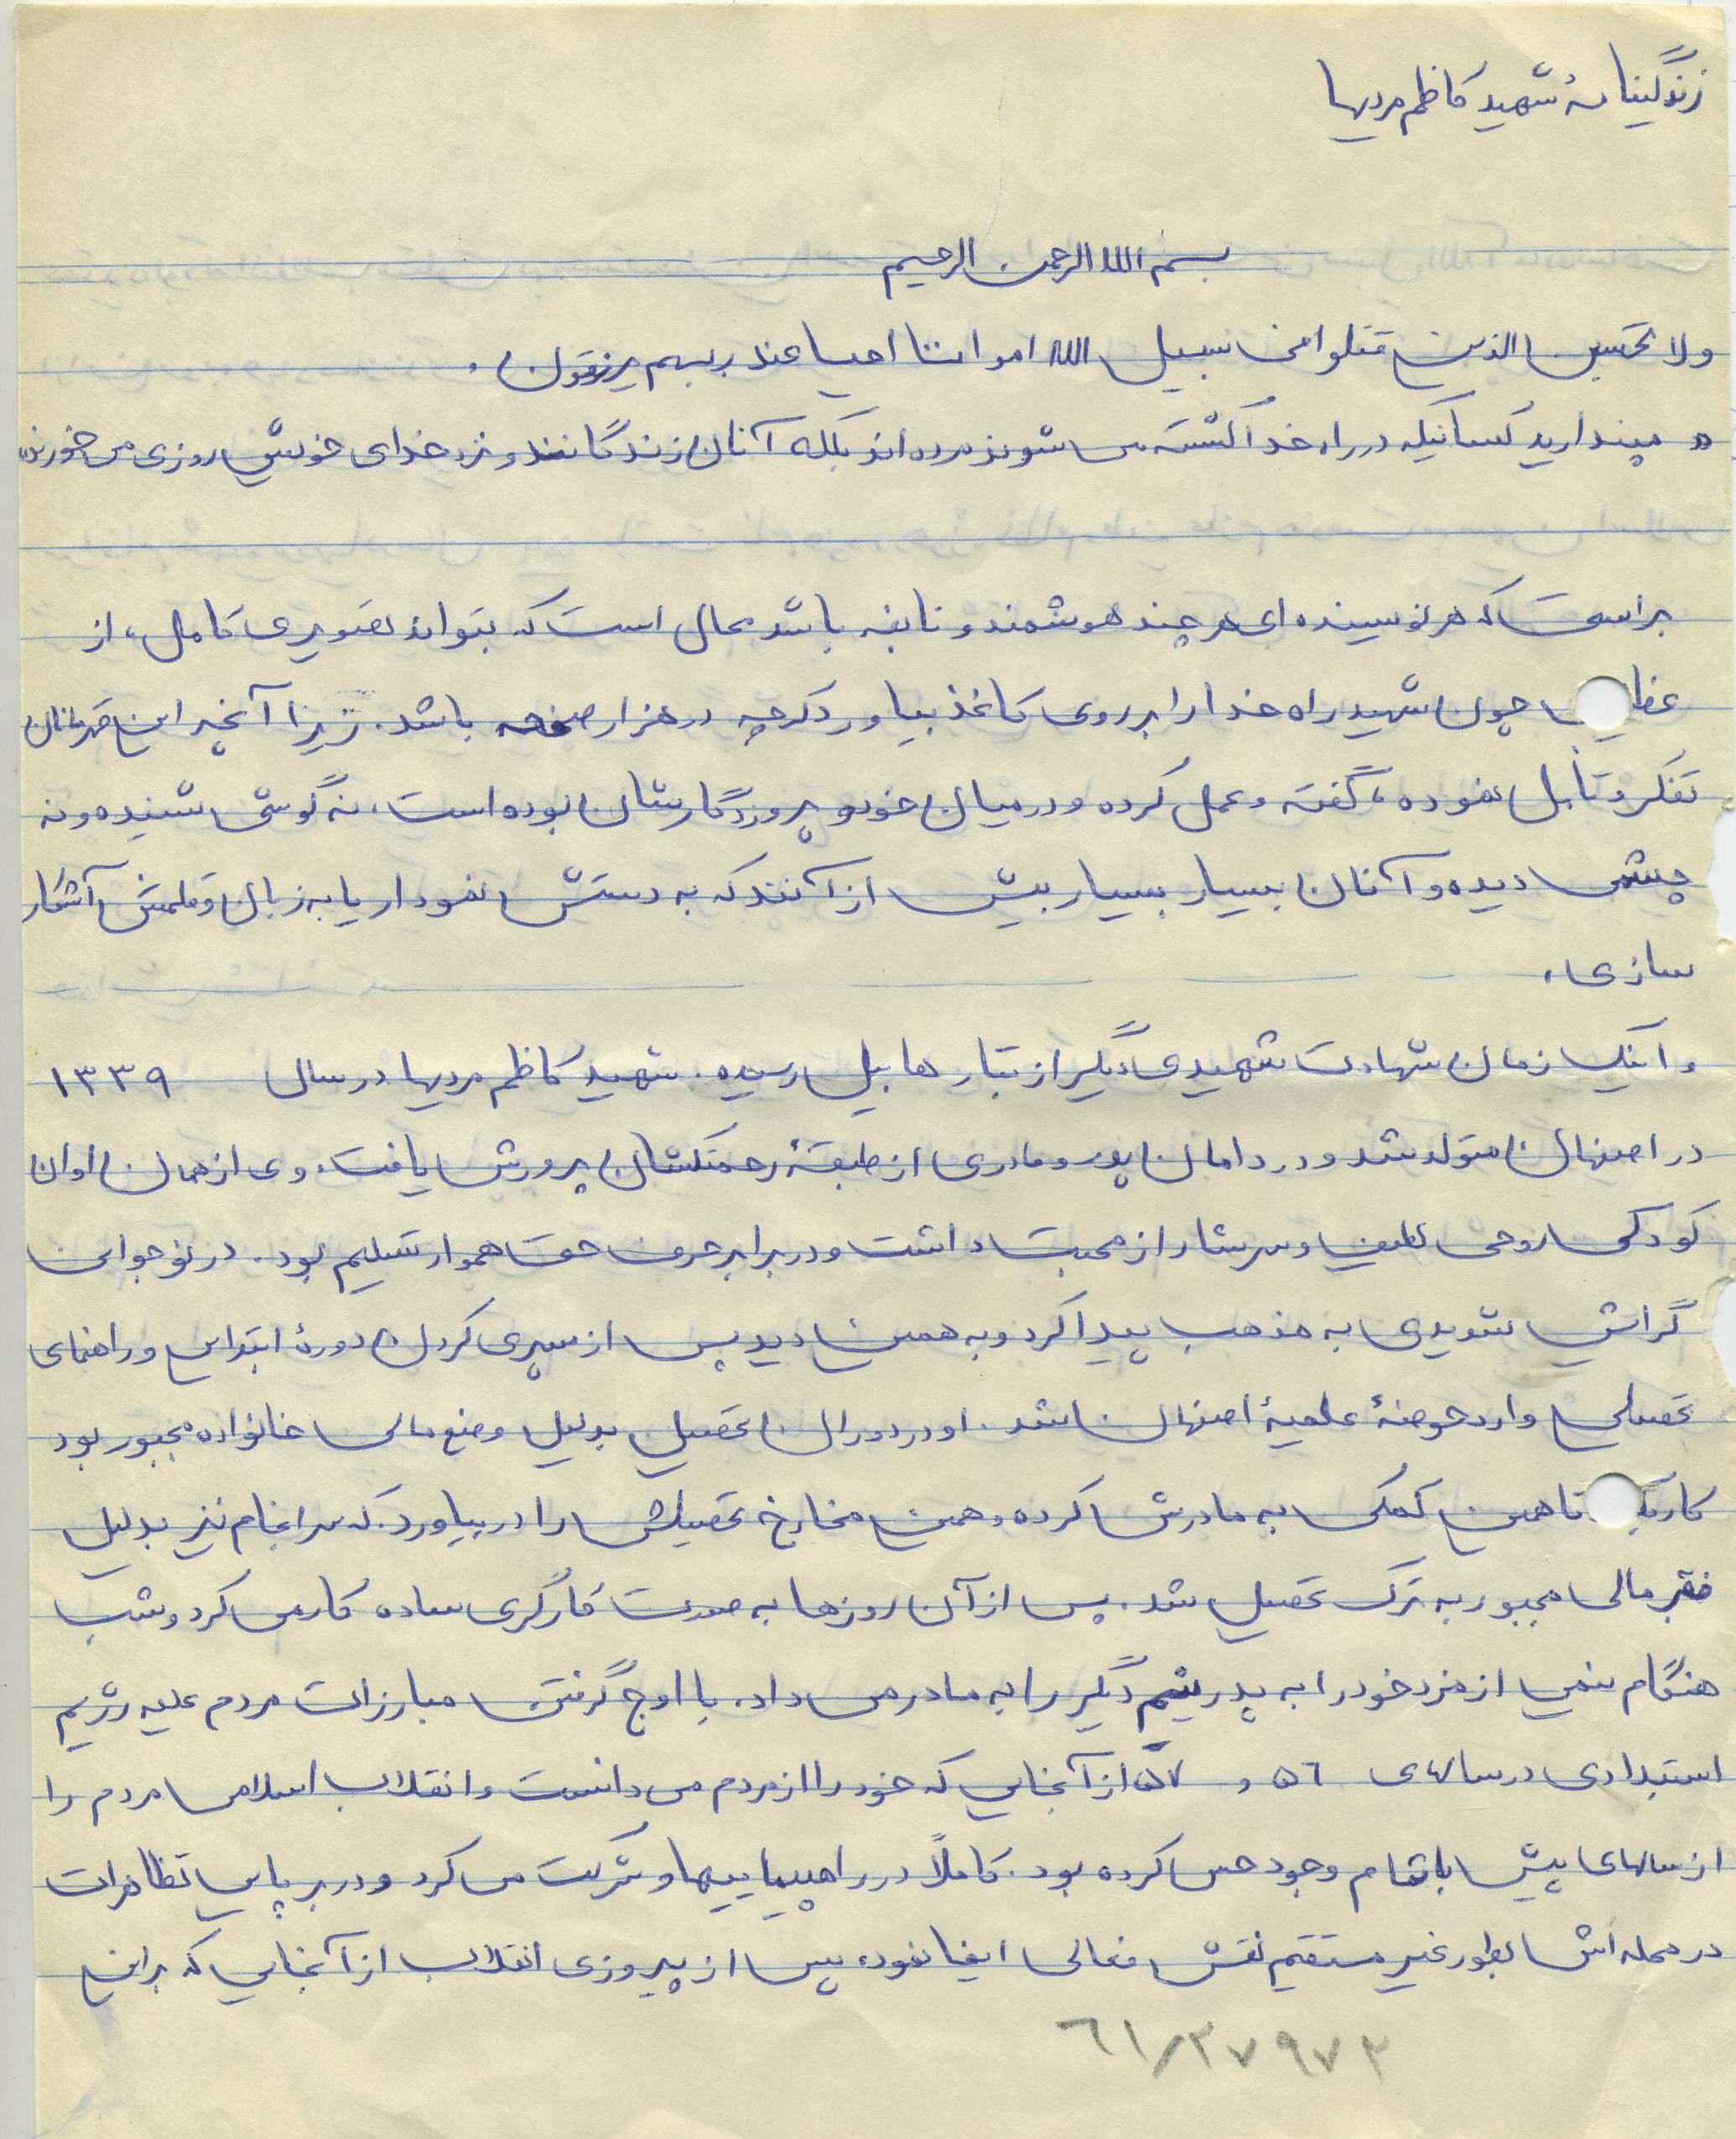 زندگینامهٔ شهید کاظم مردیها
بسم الله الرحمن الرحیم
ولا تحسبن الذین قتلوا فی سبیل الله امواتا احیا عند ربهم یرزقون.
« مپندارید کسانیکه در راه خدا کشته می شوند مرده اند بلکه آنان زندگانند و نزد خدای خویش روزی می خورند»
براستی که هر نویسنده ای هر چند هوشمند و نابغه باشد محال است که بتواند تصویری کامل، از
چون شهید راه خدا را بر روی کاغذ بیاورد گرچه در هزار صفحه باشد. زیرا آنچه این قهرمانان
تفکر و تأمل نموده، گفته و عمل کرده و در میان خود و پروردگارشان بوده است، نه گوشی شنیده و نه
چشمی دیده و آنان بسیار بسیار بیش از آنند که به دستش نمودار یا به زبان و قلمش آشکار
سازی.
و اینک زمان شهادت شهیدی دیگر از تبار هابیل رسیده. شهید کاظم مردیها در سال ۱۳۳۹
در اصفهان متولد شد و در دامان پدر و مادری از طبقهٔ زحمتکشان پرورش یافت. وی از همان اوان
کودکی روحی لطیف و سرشار از محبت داشت و در برابر حرف حق هموار تسلیم بود. در نوجوانی
گرایش شدیدی به مذهب پیدا کرد و به همین دید پس از سپری کردن دورهٔ ابتدایی و راهنمای
تحصیلی وارد حوضهٔ علمیهٔ اصفهان شد. او در دوران تحصیل بدلیل وضع مالی خانواده مجبور بود
کار تا همین کمکی به مادرش کرده و همین مخارج تحصیلش را در بیاورد. که سرانجام نیز بدلیل
فقر مالی مجبور به ترک تحصیل شد. پس از آن روزها به صورت کارگری ساده کار می کرد و شب
هنگام نیمی از مزد خود را به پدر و نیم دگیر را به مادر می داد. با اوج گرفتن مبارزات مردم علیه رژیم
استبدادی در سالهای ۵۶ و ۵۷ از آنجایی که خود را از مردم می دانست و انقلاب اسلامی مردم را
از سالهای پیش با تمام وجود حس کرده بود. کاملاً در راهپیماییها و شرکت می کرد و در برپایی تظاهرات
در محله اش بطور غیر مستقیم نقش فعالی ایفا نمود. پس از پیروزی انقلاب از آنجایی که براین
۶۱/۲۷۹۷۲